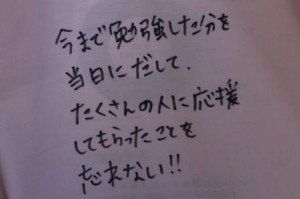 今まで勉強した分を
当日にだして、
たくさんの人に応援
してもらったことを
忘れない!!